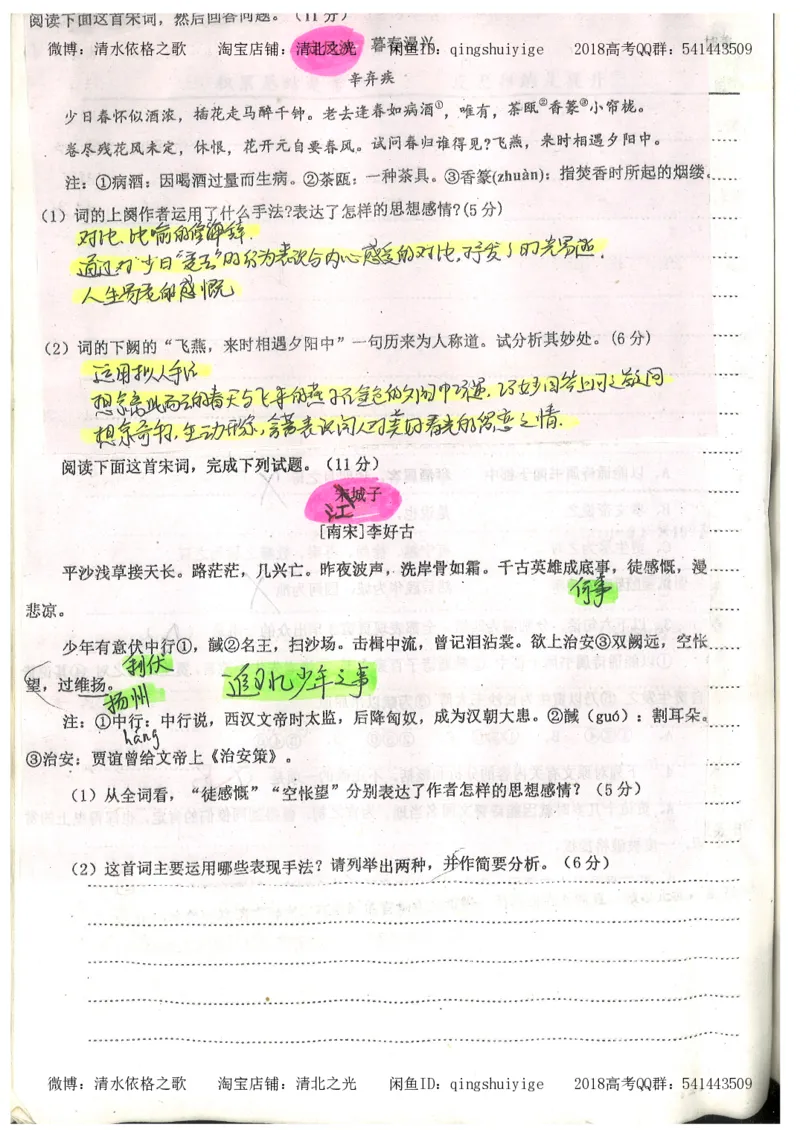 阅读下面这首宋词，然后回答问题。（11分）
微博：清水依格之歌 淘宝店铺：清北之光 闲鱼ID：qingshuiyige 2018高考QQ群：541443509
暮春漫兴
辛弃疾
少日春怀似酒浓，插花走马醉千钟。老去逢春如病酒①，唯有，茶瓯②香篆③小帘栊。
卷尽残花风未定，休恨，花开元自要春风。试问春归谁得见？飞燕，来时相遇夕阳中。
注：①病酒：因喝酒过量而生病。②茶瓯：一种茶具。③香篆(zhuàn)：指焚香时所起的烟缕。
（1）词的上阕作者运用了什么手法？表达了怎样的思想感情？(5分)
对比、比喻的修辞
通过对“少日”“老去”的行为表现与内心感受的对比，抒发了时光易逝，
人生易老的感慨
（2）词的下阙的“飞燕，来时相遇夕阳中”一句历来为人称道。试分析其妙处。（6分）
运用拟人手法
想象奇特，生动形象，含蓄表现词人对美好春光的留恋之情.
阅读下面这首宋词，完成下列试题。（11分）
江城子
[南宋]李好古
平沙浅草接天长。路茫茫，几兴亡。昨夜波声，洗岸骨如霜。千古英雄成底事，徒感慨，漫
何事
悲凉。
少年有意伏中行①，馘②名王，扫沙场。击楫中流，曾记泪沾裳。欲上治安③双阙远，空怅
制伏
望，过维扬。
追忆少年之事
扬州
注：①中行：中行说，西汉文帝时太监，后降匈奴，成为汉朝大患。②馘（guó）：割耳朵。
háng
③治安：贾谊曾给文帝上《治安策》。
（1）从全词看，“徒感慨”“空怅望”分别表达了作者怎样的思想感情？（5分）
（2）这首词主要运用哪些表现手法？请列举出两种，并作简要分析。（6分）
微博：清水依格之歌 淘宝店铺：清北之光 闲鱼ID：qingshuiyige 2018高考QQ群：541443509